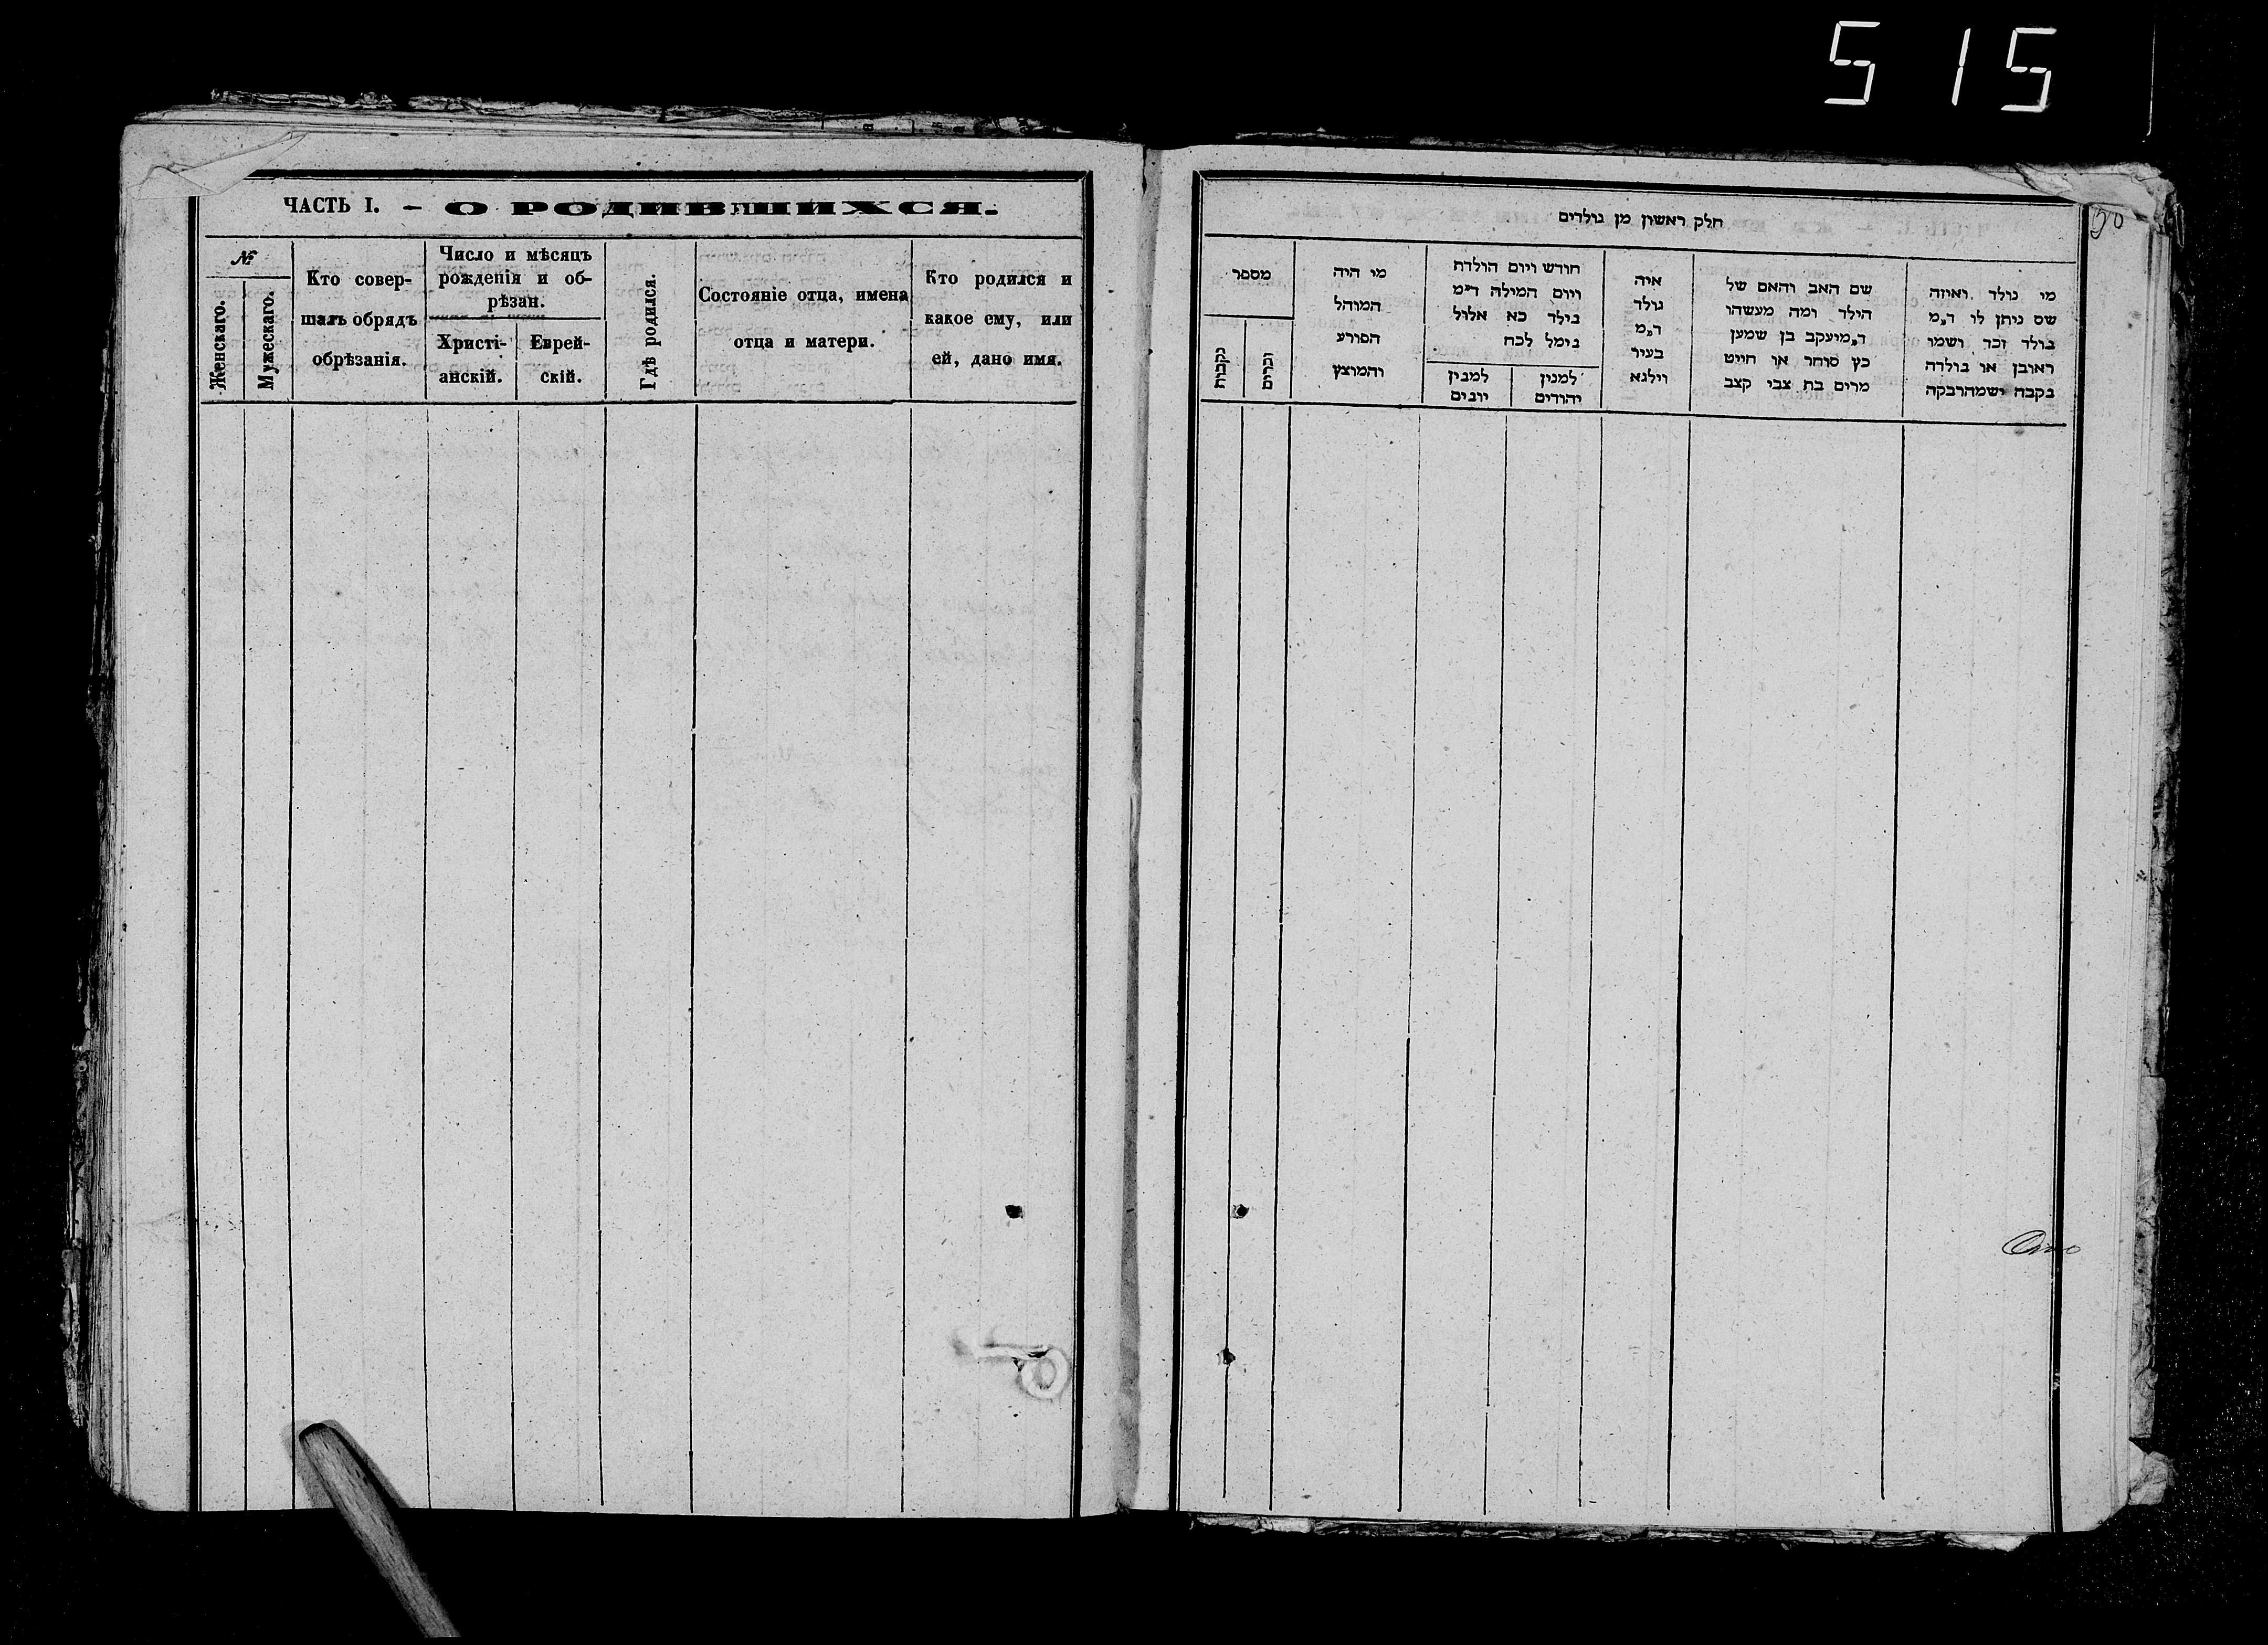 515
ЧАСТЬ I. – О РОДИВШИХСЯ.
№
Женскаго.
Мужескаго.
Кто совер-
шалъ обрядъ
обрѣзанія.
Число и мѣсяцъ
рожденія и об-
рѣзан.
Христі-
анскій.
Еврей-
скій.
Гдѣ родился.
Состояніе отца, имена
отца и матери.
Кто родился и
какое ему, или
ей, дано имя.
חלק ראשון מן נולדים
מי נולד ואיזה
שם ניתן לו ד״מ
נולד זכר ושמו
ראובן או נולדה
נקבה ושמהרבקה
שם האב והאם של
הילד ומה מעשהו
ד״מיעקב בן שמען
כץ סוחר או חייט
מרים בת צבי קצב
איה
נולד
ד״מ
בעיר
ווילנא
חודש ויום הולדת
ויום המילה ד״מ
נולד כא אלול
נימל לכח
למנין
יהודים
למנין
יונים
מי היה
המוהל
הפורע
והמוצץ
מספר
זכרים
נקבות